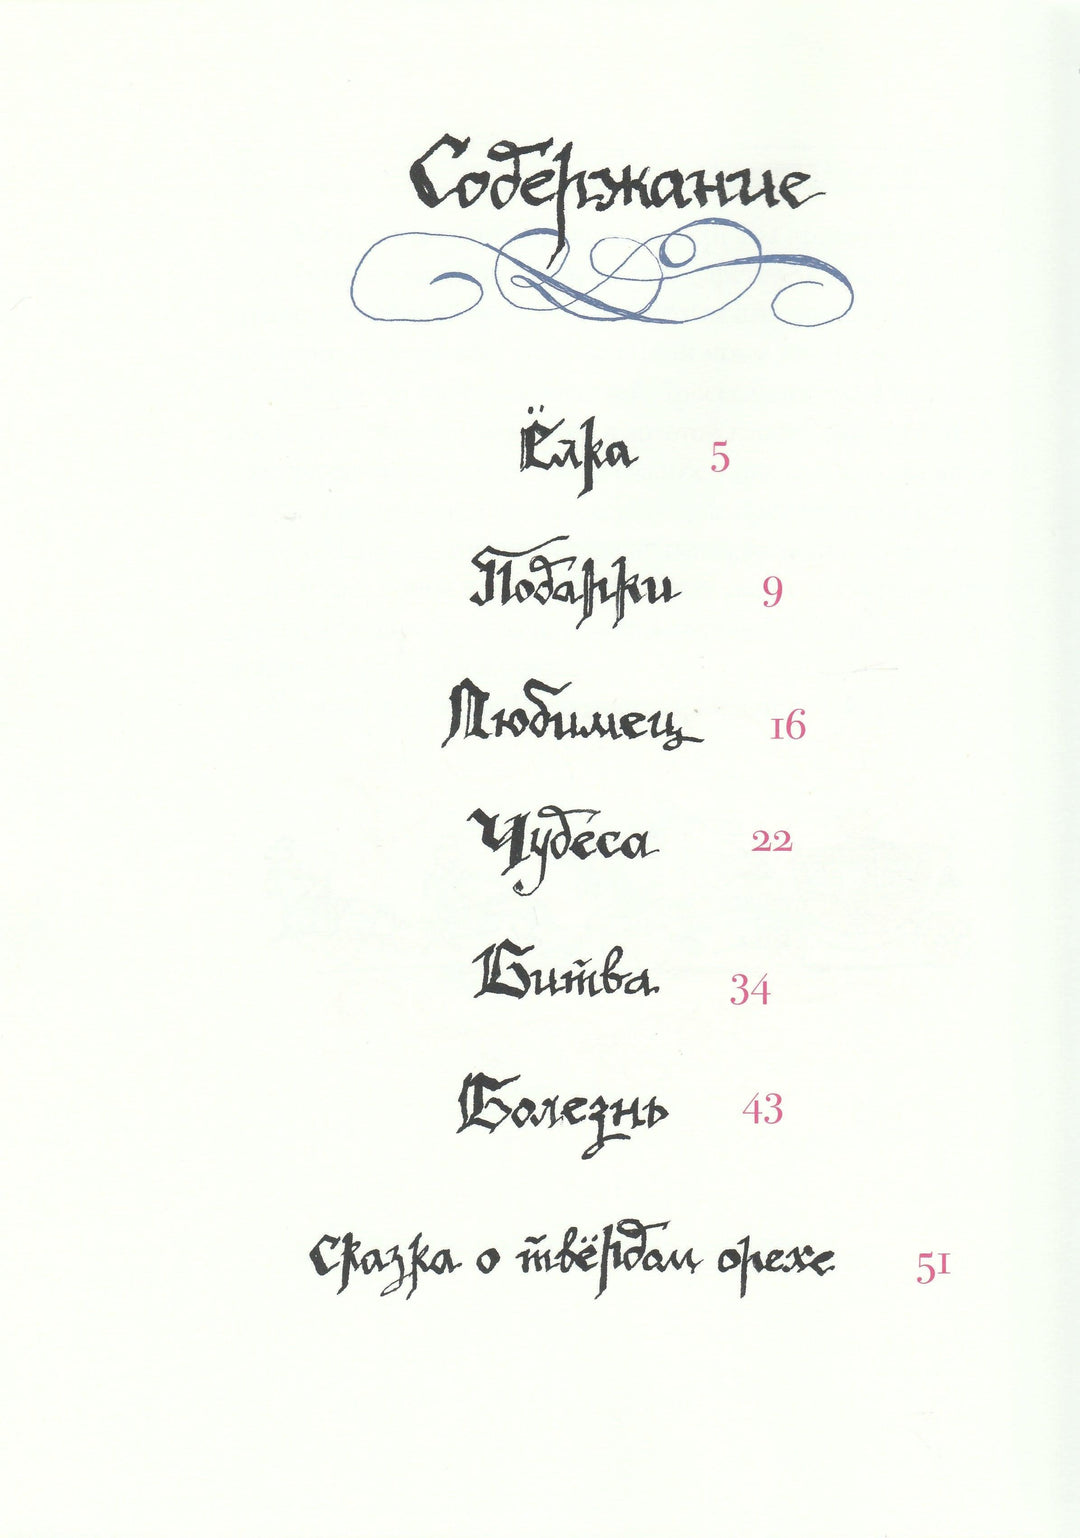 Содержание
Ёлка 5
Подарки 9
Любимец 16
Чудеса 22
Битва 34
Болезнь 43
Сказка о твёрдом орехе 51